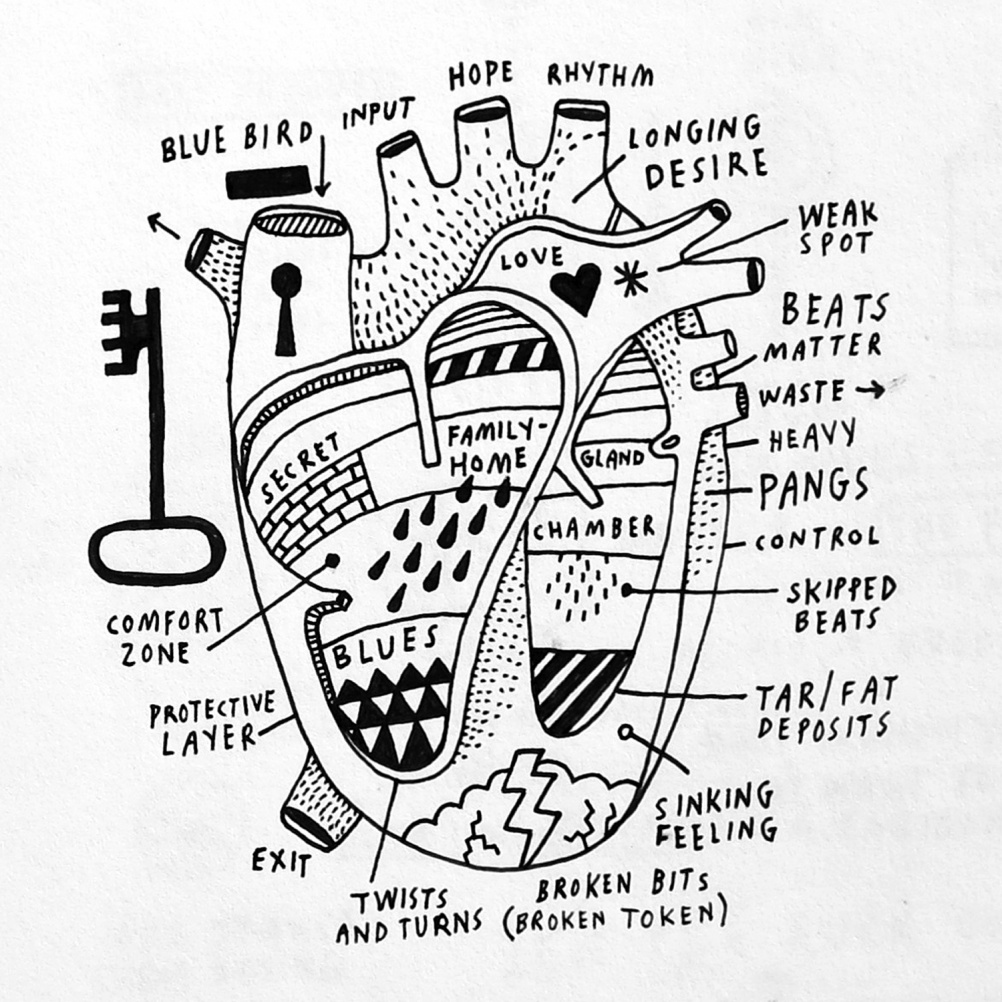 HOPE RHYTHM
BLUE BIRD
INPUT
LONGING
DESIRE
WEAK
SPOT
LOVE
BEATS
MATTER
WASTE
HEAVY
SECRET
FAMILY-
HOME
GLAND
PANGS
CHAMBER
CONTROL
SKIPPED
BEATS
COMFORT
ZONE
BLUES
TAR/FAT
DEPOSITS
PROTECTIVE
LAYER
SINKING
FEELING
EXIT
TWISTS
AND TURNS
BROKEN BITS
(BROKEN TOKEN)